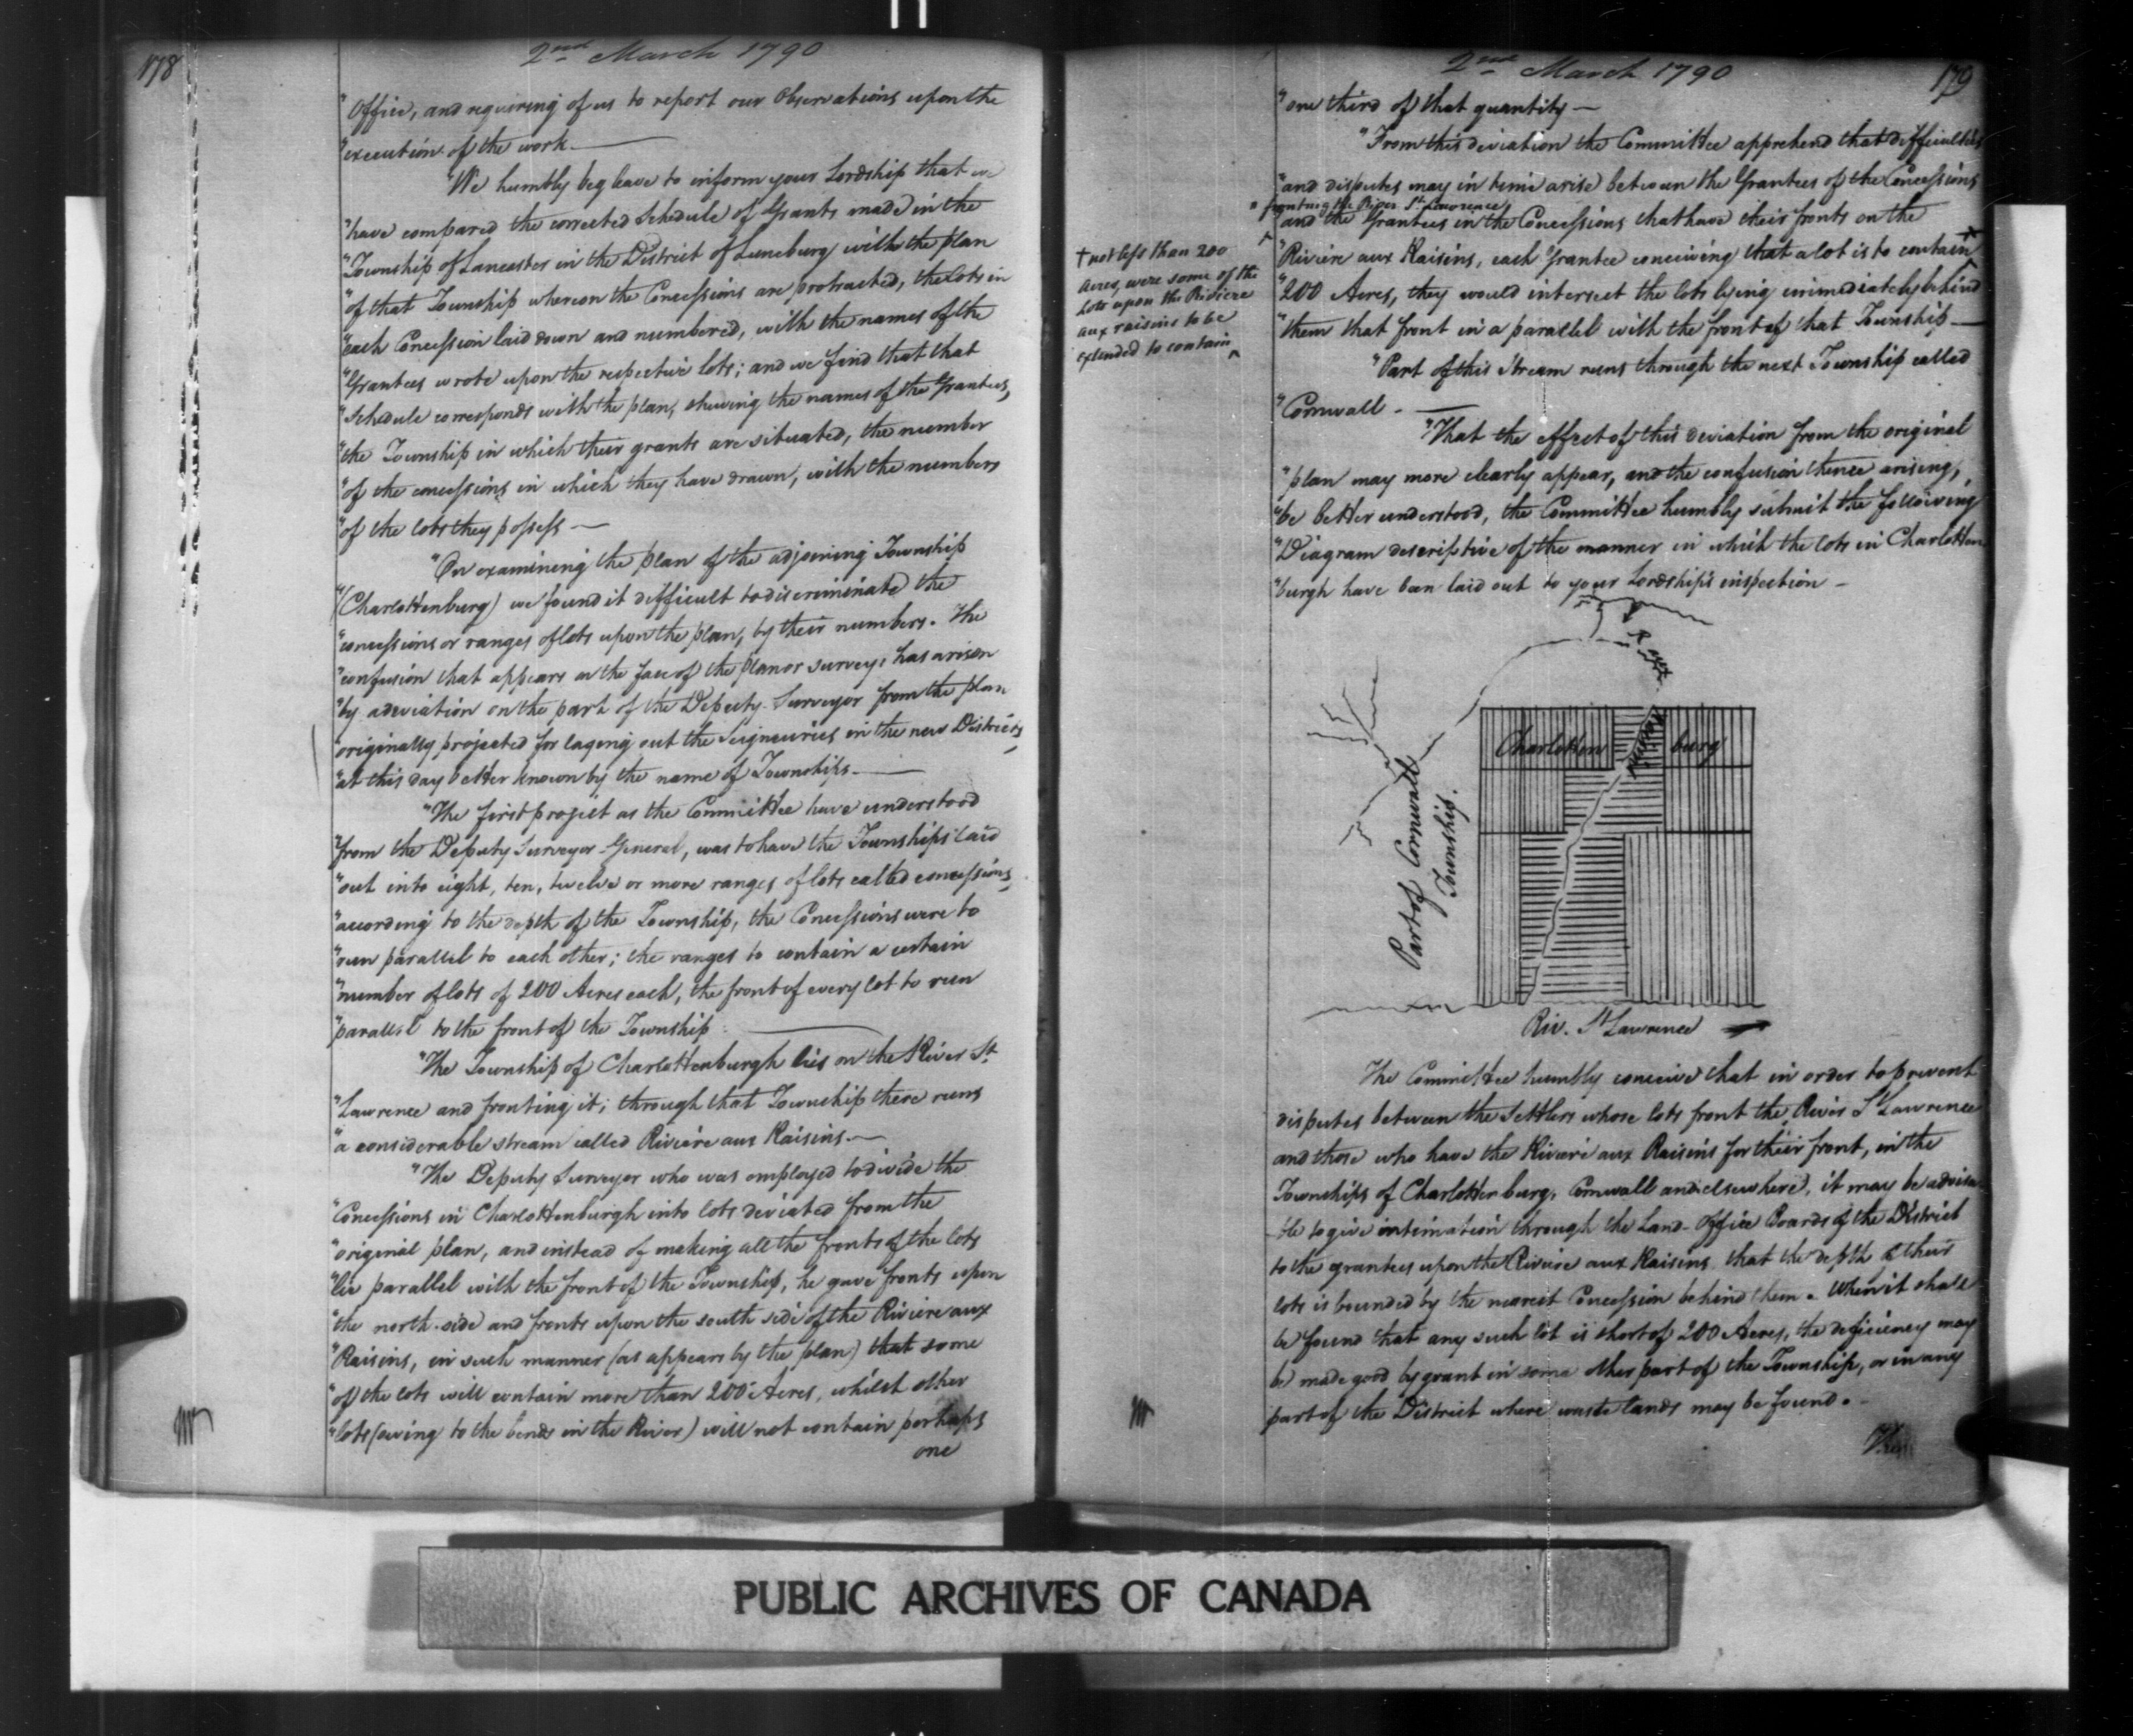 178
2nd March 1790
"Office, and requiring of us to report our Observations upon the
"execution of the work.—
"We humbly beg leave to inform your Lordship that we
"have compared the corrected Schedule of Grants made in the
"Township of Lancaster in the District of Luneburg with the plan
"of that Township whereon the Concessions are protracted, the lots in
"each Concession laid down and numbered, with the names of the
"Grantees wrote upon the respective lots; and we find that that
"Schedule corresponds with the plan, shewing the names of the Grantees,
"the Township in which their grants are situated, the number
"of the concessions in which they have drawn, with the numbers
"of the lots they possess—
"On examining the plan of the adjoining Township
"(Charlottenburg) we found it difficult to discriminate the
"concessions or ranges of lots upon the plan, by their numbers. The
"confusion that appears on the face of the plan or survey, has arisen
"by a deviation on the part of the Deputy Surveyor from the plan
"originally projected for laying out the Seigneuries in the new Districts,
"at this day better known by the name of Townships.—
"The first project as the Committee have understood
"from the Deputy Surveyor General, was to have the Townships laid
"out into eight, ten, twelve or more ranges of lots called concessions,
"according to the depth of the Township, the Concessions were to
"run parallel to each other; the ranges to contain a certain
"number of lots of 200 Acres each, the front of every lot to run
"parallel to the front of the Township.—
"The Township of Charlottenburgh lies on the River St.
"Lawrence and fronting it; through that Township there runs
"a considerable stream called Riviére aux Raisins.—
"The Deputy Surveyor who was employed to divide the
"Concessions in Charlottenburgh into lots deviated from the
"original plan, and instead of making all the fronts of the lots
"lie parallel with the front of the Township, he gave fronts upon
"the north-side and fronts upon the south side of the Riviere aux
"Raisins, in such manner (as appears by the plan) that some
"of the lots will contain more than 200 Acres, whilst other
"lots (owing to the bends in the River) will not contain perhaps
one
2nd March 1790
179
"one third of that quantity—
"From this deviation the Committee apprehend that difficulties
"and disputes may in time arise between the Grantees of the Concessions
"fronting the River St. Lawrence
"and the Grantees in the Concessions that have their fronts on the
"Riviere aux Raisins, each Grantee conceiving that a lot is to contain
† not less than 200
Acres, were some of the
Lots upon the Riviere
aux raisins to be
extended to contain
"200 Acres, they would intersect the lots lying immediately behind
"them that front in a parallel with the front of that Township—
"Part of this Stream runs through the next Township called
"Cornwall.—
"That the effect of this deviation from the original
"plan may more clearly appear, and the confusion thence arising,
"be better understood, the Committee humbly submit the following
"Diagram descriptive of the manner in which the lots in Charlotten
"burgh have been laid out to your Lordship's inspection—
R. aux
Raisins
Charlotten burg
Part of Cornwall
Township.
Riv. St Lawrence
The Committee humbly conceive that in order to prevent
disputes between the Settlers whose lots front the River St Lawrence
and those who have the Riviere aux Raisins for their front, in the
Townships of Charlottenburg, Cornwall and elsewhere, it may be advisa
-ble to give intimation through the Land-Office Boards of the District
to the grantees upon the Riviere aux Raisins that the depth of their
lots is bounded by the nearest Concession behind them. When it shall
be found that any such lot is short of 200 Acres, the deficiency may
be made good by grant in some other part of the Township, or in any
part of the District where waste lands may be found.
PUBLIC ARCHIVES OF CANADA